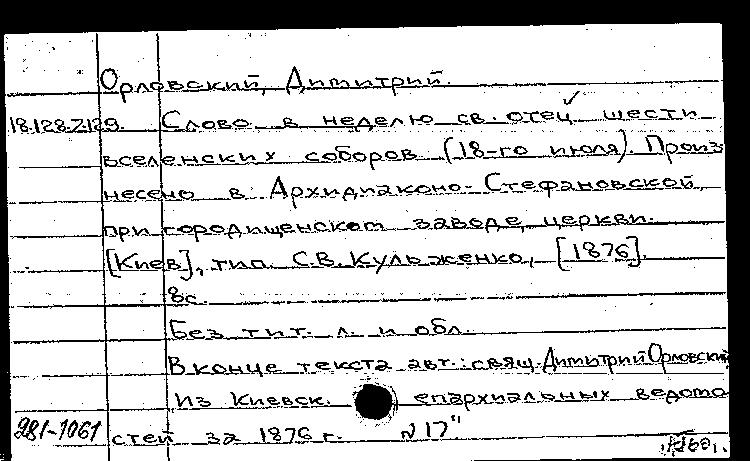 Орловский, Димитрий.
18.128.7.129. Слово в неделю св. отец шести
вселенских соборов (18-го июля). Произ
несено в Архидиаконо-Стефановской,
при городищенском заводе, церкви.
[Киев], тип. С.В. Кульженко, [1876].
8с.
Без тит. л. и обл.
В конце текста авт.: свящ. Димитрий Орловский
Из Киевск. епархиальных ведомо
281-1061 стей за 1876 г. №17"